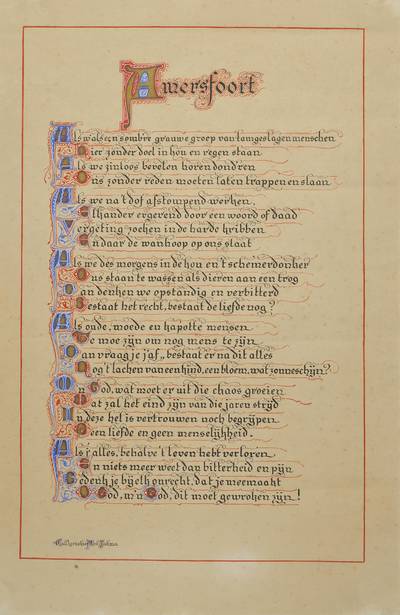 Amersfoort
Als we als een sombre grauwe groep van lamgeslagen menschen
Hier zonder doel in kou en regen staan
Als we zinloos bevelen horen dond'ren
Ons zonder reden moeten laten trappen en slaan
Als we na 't dof afstompend werken,
Elkander ergerend door een woord of daad
Vergeting zoeken in de harde kribben
En daar de wanhoop op ons slaat
Als we des morgens in de kou en 't schemerdonker
Ons staan te wassen als dieren aan een trog
Dan denken we opstandig en verbitterd
Bestaat het recht, bestaat de liefde nog?
Als oude, moede en kapotte mensen
We moe zijn om nog mens te zijn
Dan vraag je j'af „bestaat er na dit alles
Nog 't lachen van een kind, een bloem, wat zonneschijn?
O'n God, wat moet er uit die chaos groeien
Wat zal het eind zijn van die jaren strijd
In deze hel is vertrouwen noch begrijpen
Geen liefde en geen menselijkheid.
Als j'alles, behalve 't leven hebt verloren
En niets meer weet dan bitterheid en pijn
Gedenk je bij elk onrecht, dat je meemaakt
O God, m'n God, dit moet gewroken zijn!